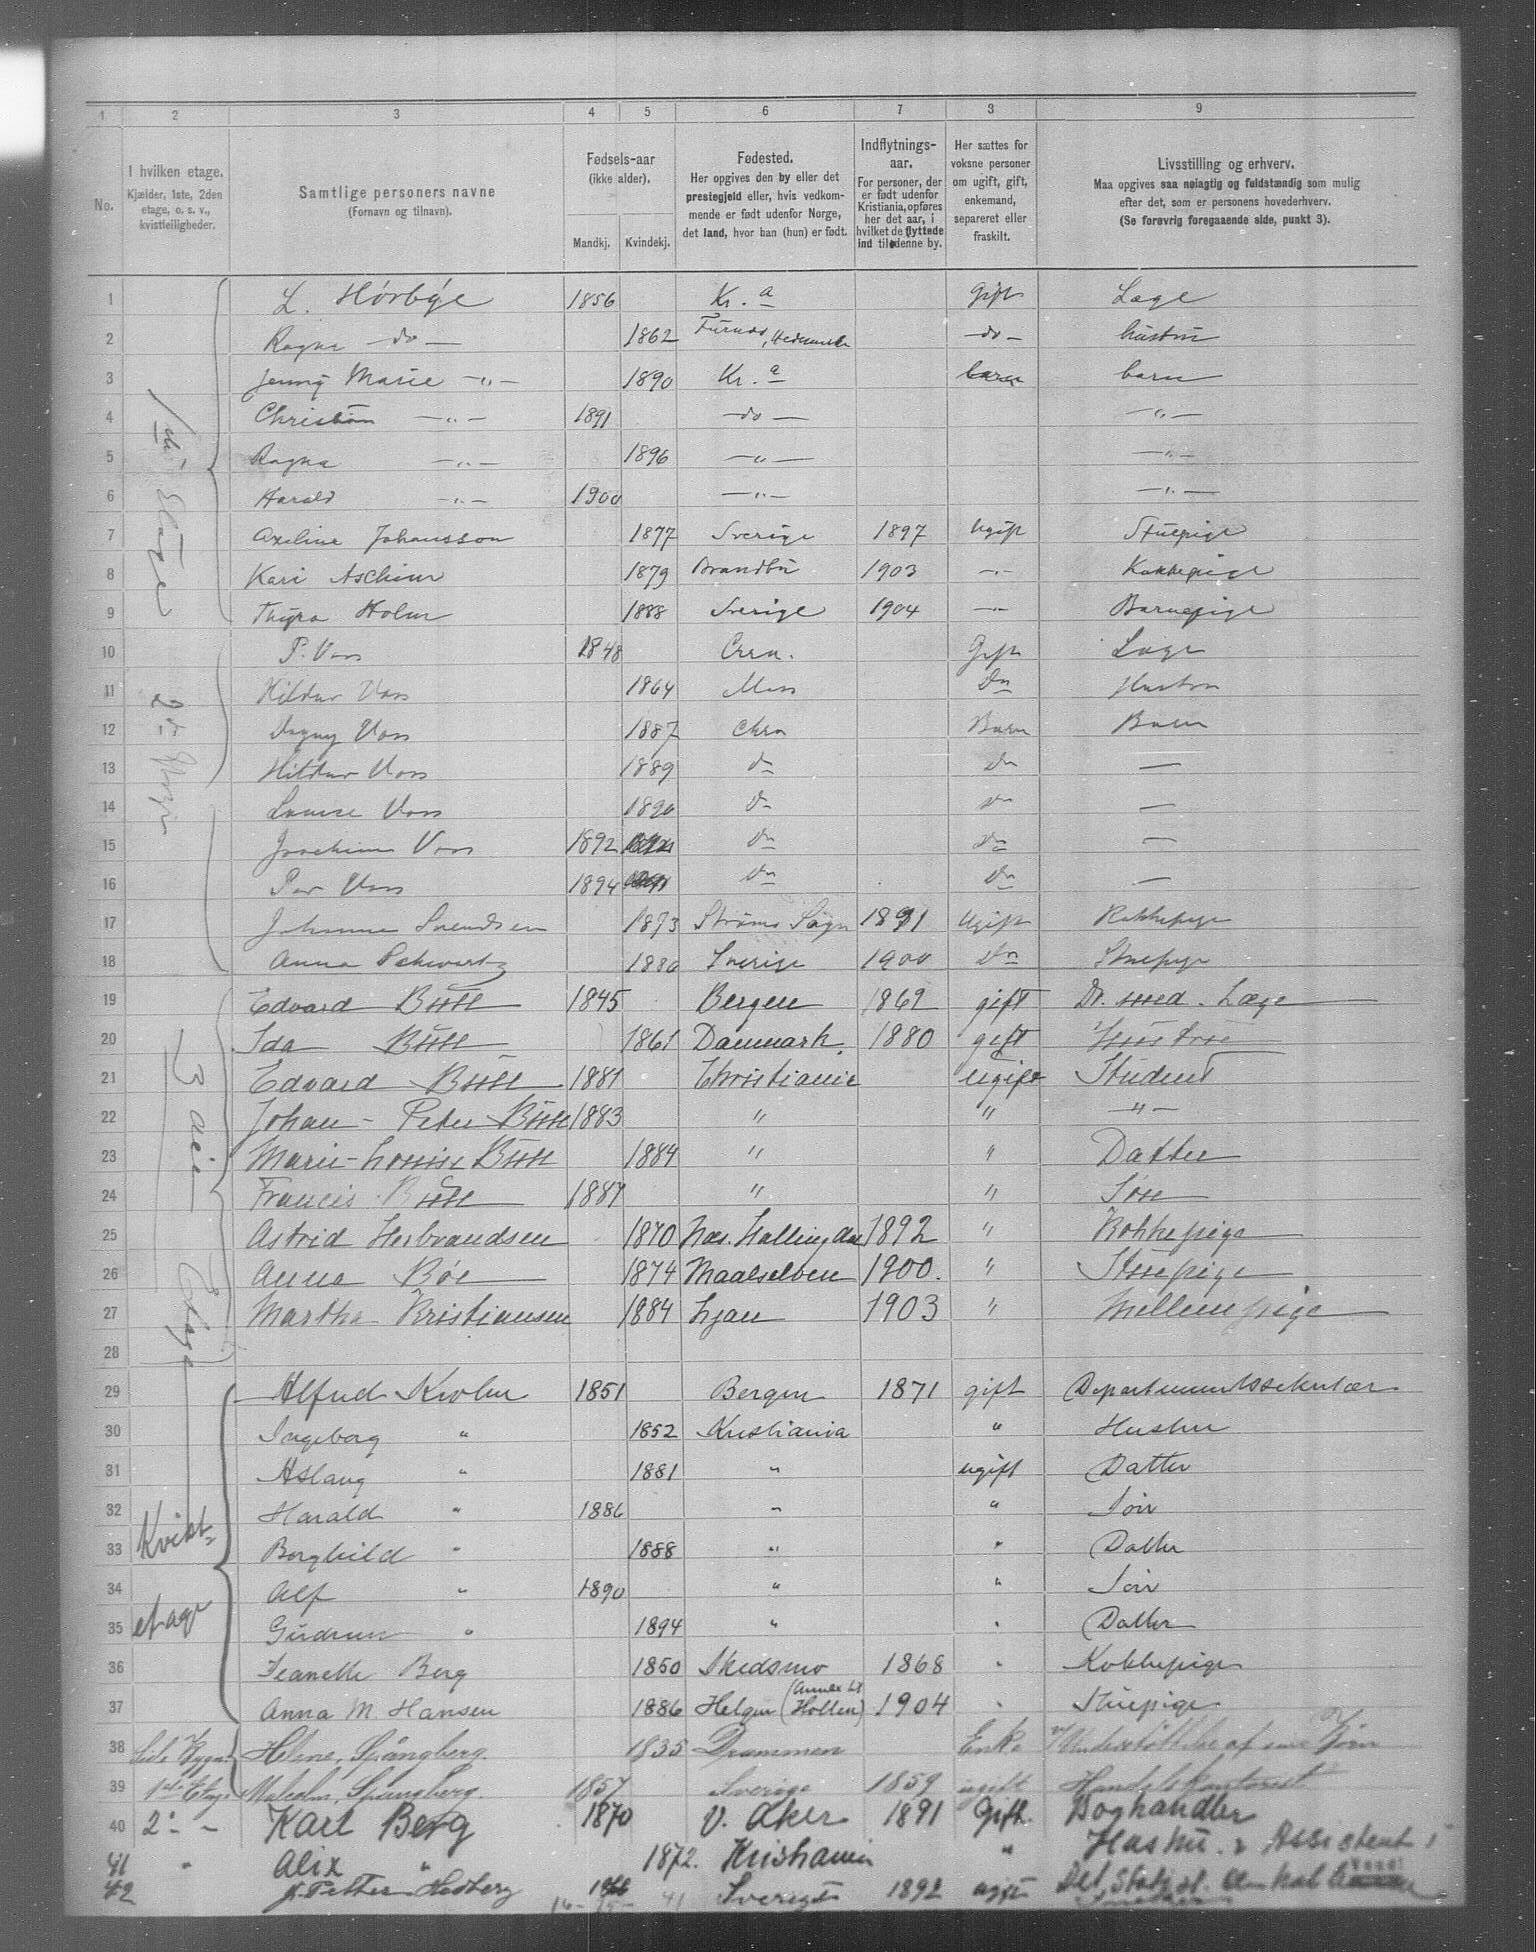 1 2 3 4 5 6 7 8 9
No.
I hvilken etage.
Kjælder, 1ste, 2den
etage, o. s. v.,
kvistleiligheder.
Samtlige personers navne
(Fornavn og tilnavn).
Fødsels-aar
(ikke alder).
Mandkj. Kvindekj.
Fødested.
Her opgives den by eller det
prestegjeld eller, hvis vedkom-
mende er født udenfor Norge,
det land, hvor han (hun) er født.
Indflytnings-
aar.
For personer, der
er født udenfor
Kristiania, opføres
her det aar, i
hvilket de flyttede
ind til denne by.
Her sættes for
voksne personer
om ugift, gift,
enkemand,
separeret eller
fraskilt.
Livsstilling og erhverv.
Maa opgives saa nøiagtig og fuldstændig som mulig
efter det, som er personens hovederhverv.
(Se forøvrig foregaaende side, punkt 3).
1 L. Hørbye 1856 Kr.a Gift Læge
2 Ragna -do- 1862 Furnæs, Hedemark -do- hustru
3 Jenny Marie -"- 1890 Kr.a barn barn
4 Christian -"- 1891 -do- -"-
5 Ragna -"- 1896 -"- -"-
6 Harald -"- 1900 -"- -"-
7 Axeline Johansson 1877 Sverige 1897 Ugift Stuepige
8 Kari Aschim 1879 Brandbu 1903 -"- Kokkepige
9 Thyra Holm 1888 Sverige 1904 -"- Barnepige
1ste Etage
10 P. Voss 1848 Chra. Gift Læge
11 Hildur Voss 1864 Moss Do Hustru
12 Dagny Voss 1887 Chra Barn Barn
13 Hildur Voss 1889 do Do —
14 Louise Voss 1890 do do —
15 Joachim Voss 1892 do do —
16 Per Voss 1894 do do —
17 Johanne Svendsen 1873 Strøms Sogn 1891 Ugift Kokkepige
18 Anna Schwartz 1880 Sverige 1900 Do Stuepige
2
19 Edvard Bull 1845 Bergen 1869 gift Dr. med. Læge
20 Ida Bull 1861 Danmark. 1880 gift Hustru
21 Edvard Bull 1881 Christiania ugift Student
22 Johan-Peter Bull 1883 " " -"-
23 Marie-Louise Bull 1884 " " Datter
24 Francis Bull 1887 " " Søn
25 Astrid Herbrandsen 1870 Næs. Hallingdal 1892 " Kokkepige
26 Anna Bøe 1874 Maalselven 1900. " Stuepige
27 Martha Kristiansen 1884 Ljan 1903 " Mellempige
28
3die Etage
29 Alfred Krohn 1851 Bergen 1871 gift Departementssekretær
30 Ingeborg " 1852 Kristiania " Hustru
31 Aslaug " 1881 " ugift Datter
32 Harald " 1886 " " Søn
33 Borghild " 1888 " " Datter
34 Alf " 1890 " " Søn
35 Gudrun " 1894 " " Datter
36 Jeanette Berg 1850 Skedsmo 1868 " Kokkepige
37 Anna M. Hansen 1886 Helgen (Annex til Hollen) 1904 " Stuepige
Kvist-
etage
38 Side Bygn. Helene Spångberg. 1835 Drammen Enke Understøttelse af sine Børn
39 1ste Etage Malcolm Spångberg. 1857 Sverige 1859 ugift Handelskontorist
40 2 - - Karl Berg 1870 V. Aker 1891 Gift Boghandler
41 " Alix " 1872. Kristiania " Hustru & Assistent i
42 J. Petter Hedberg Sverige 1892 ugift Det Statist. Centralbureau